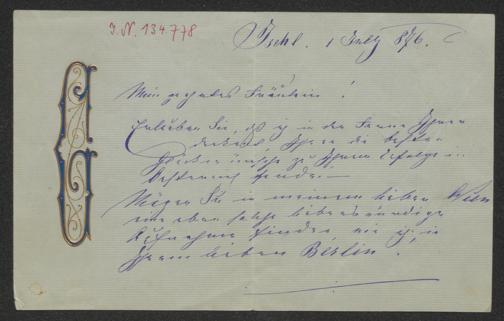 I.N. 134.778
Ischl. 1 July 876.
Mein geehrtes Fräulein!
Erlauben Sie, daß ich in der Ferne Ihnen
Ihnen die besten
Glückwünsche zu Ihrem Erfolge in
sende. —
Mögen Sie in meinem lieben Wien
eine eben solche liebenswürdige
Aufnahme finden wie ich in
Ihrem lieben Berlin.